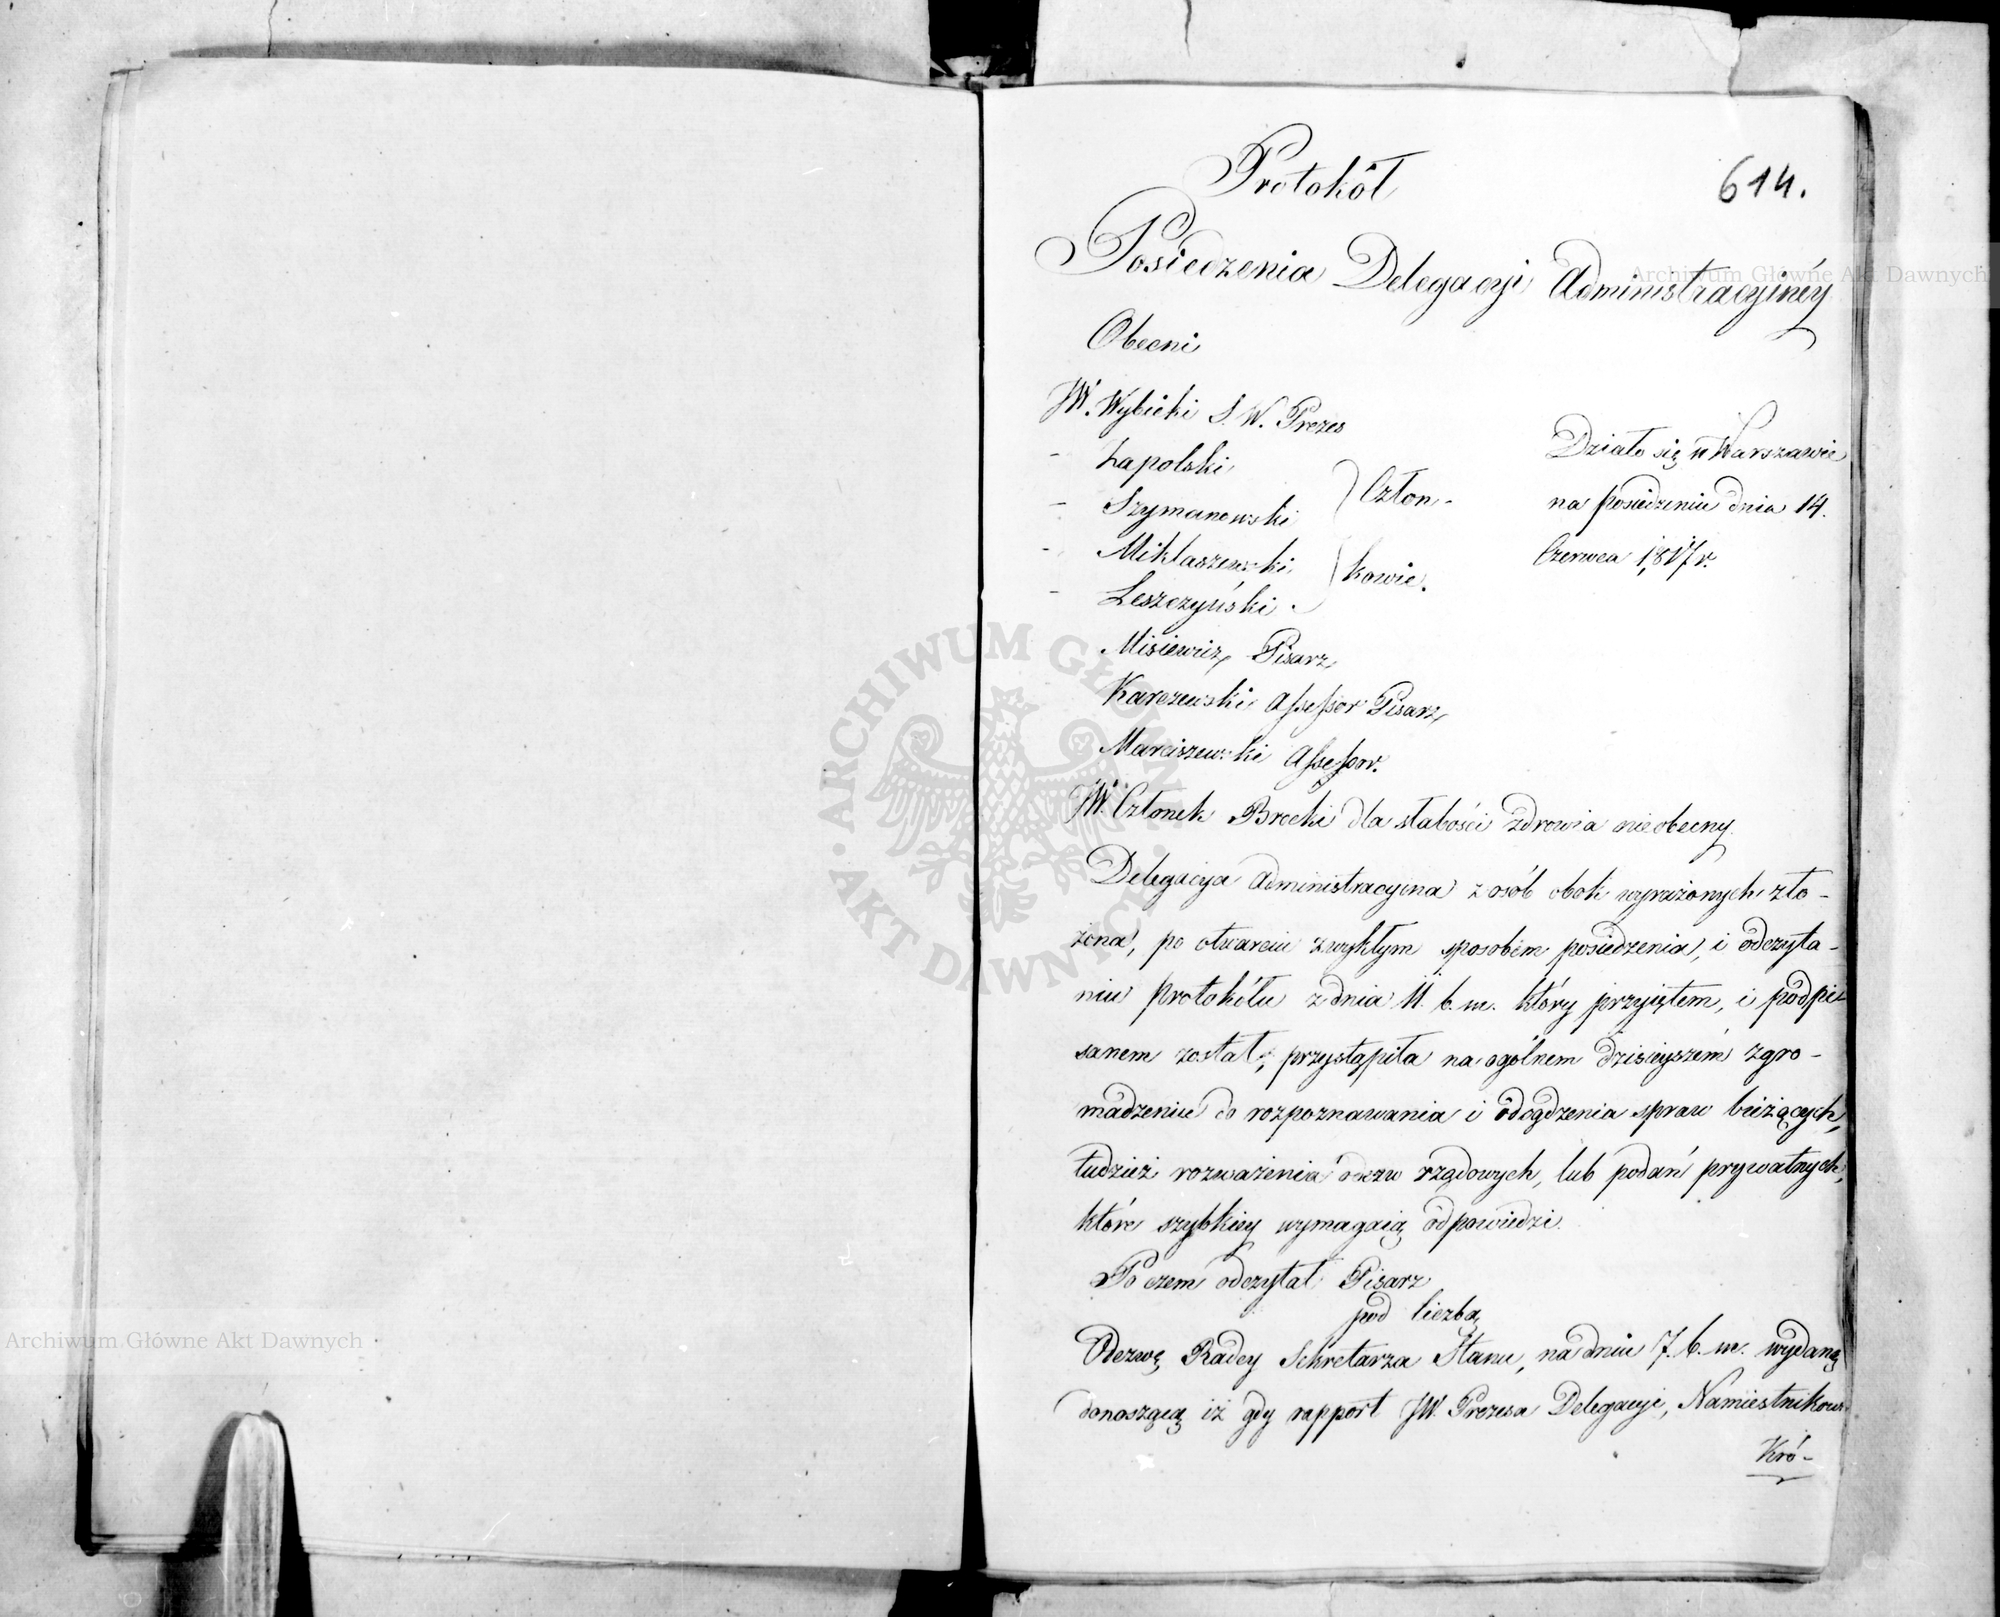 614.
Protokół
Posiedzenia Delegacyi Administracyinéy
Obecni
JW. Wybicki S. W. Prezes
Działo się w Warszawie
- Zapolski
- Szymanowski
Człon-
na posiedzeniu dnia 14.
- Miklaszewski
kowie.
Czerwca 1817 r.
- Leszczyński
Misiewicz Pisarz
Karczewski Assessor Pisarz
Marciszewski Assessor.
JW. Członek Brocki dla słabości zdrowia nieobecny.
Delegacya Administracyina z osób obok wyrażonych zło-
żona, po otwarciu zwykłym sposobem posiedzenia, i odczyta-
niu protokółu z dnia 11. b. m. który przyiętem, i podpi-
sanem został, przystąpiła na ogólnem dzisieyszém zgro-
madzeniu do rozpoznawania i osądzenia spraw bieżących,
tudzież rozważenia odezw rządowych, lub podań prywatnych,
które szybkiey wymagaią odpowiedzi.
Po czem odczytał Pisarz
pod liczbą
Odezwę Radcy Sekretarza Stanu, na dniu 7. b. m. wydaną
donoszącą iż gdy rapport JW. Prezesa Delegacyi, Namiestnikowi
Kró-
Archiwum Główne Akt Dawnych
Archiwum Główne Akt Dawnych
· ARCHIWUM GŁÓWNE · AKT DAWNYCH